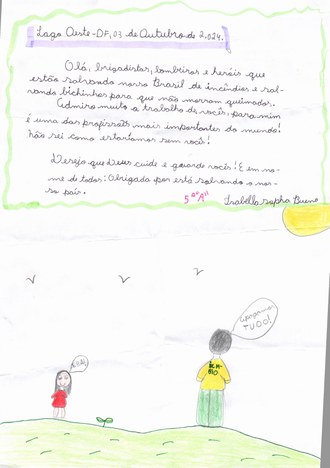 Lago Oeste-DF, 03 de Outubro de 2.024.
Olá, brigadistas, bombeiros e heróis que
estão salvando nosso Brasil de incêndios e sal-
vando bichinhos para que não morram queimados.
Admiro muito o trabalho de vocês, para mim
é uma das profissões mais importantes do mundo,
não sei como estaríamos sem vocês!
Desejo que Deus cuide e guarde vocês! E em no-
me de todos: Obrigada por está salvando o nos-
so país.
5º "A"
Sophia Bueno
Apagamos
TUDO!
ICM
BIO